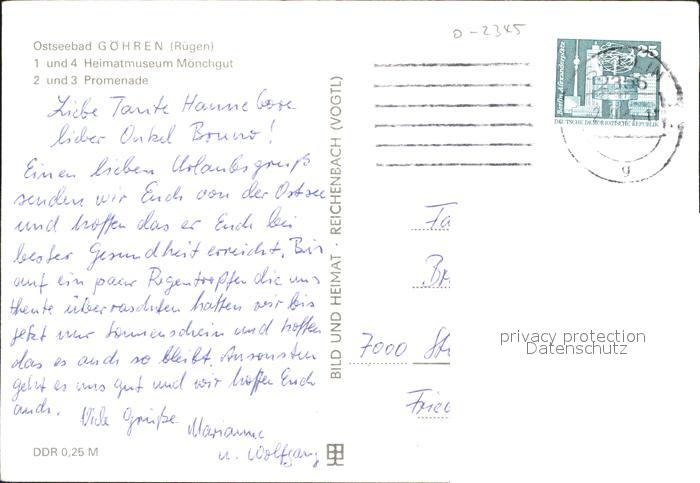 Ostseebad GÖHREN (Rügen)
1 und 4 Heimatmuseum Mönchgut
2 und 3 Promenade
Liebe Tante Hannelore
lieber Onkel Bruno!
Einen lieben Urlaubsgruß
senden wir Euch von der Ostsee
und hoffen das er Euch bei
bester Gesundheit erreicht. Bis
auf ein paar Regentropfen die uns
heute überraschten hatten wir bis
jetzt nur Sonnenschein und hoffen
das es auch so bleibt. Ansonsten
geht es uns gut und wir hoffen Euch
auch.
Viele Grüße
Marianne
u. Wolfgang
DDR 0,25 M
BILD UND HEIMAT · REICHENBACH (VOGTL)
0-2345
25
Berlin, Alexanderplatz
DEUTSCHE DEMOKRATISCHE REPUBLIK
g
Fa
Br
7000 St
Fried
privacy protection
Datenschutz